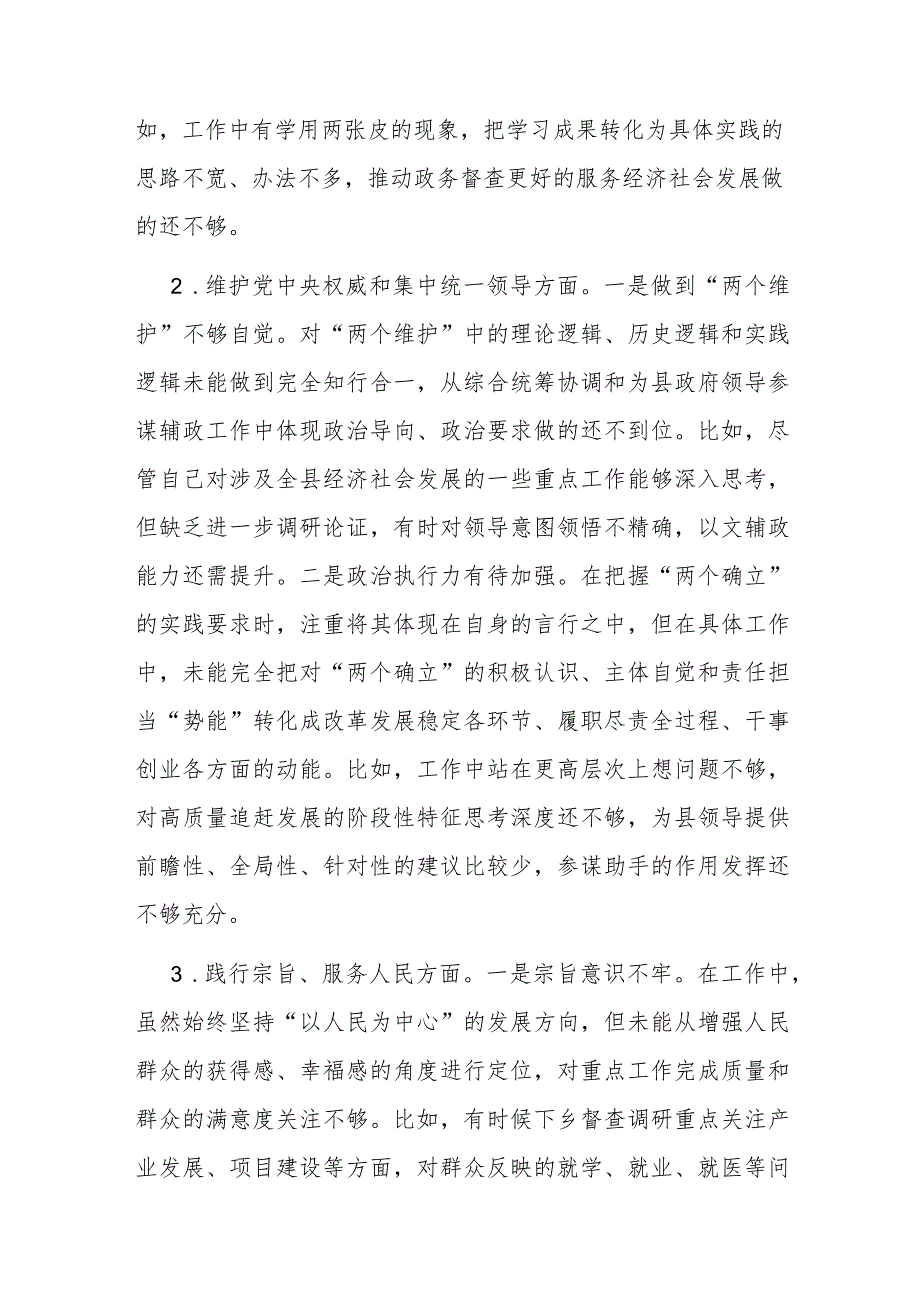 如，工作中有学用两张皮的现象，把学习成果转化为具体实践的
思路不宽、办法不多，推动政务督查更好的服务经济社会发展做
的还不够。
2．维护党中央权威和集中统一领导方面。一是做到“两个维
护”不够自觉。对“两个维护”中的理论逻辑、历史逻辑和实践
逻辑未能做到完全知行合一，从综合统筹协调和为县政府领导参
谋辅政工作中体现政治导向、政治要求做的还不到位。比如，尽
管自己对涉及全县经济社会发展的一些重点工作能够深入思考，
但缺乏进一步调研论证，有时对领导意图领悟不精确，以文辅政
能力还需提升。二是政治执行力有待加强。在把握“两个确立”
的实践要求时，注重将其体现在自身的言行之中，但在具体工作
中，未能完全把对“两个确立”的积极认识、主体自觉和责任担
当“势能”转化成改革发展稳定各环节、履职尽责全过程、干事
创业各方面的动能。比如，工作中站在更高层次上想问题不够，
对高质量追赶发展的阶段性特征思考深度还不够，为县领导提供
前瞻性、全局性、针对性的建议比较少，参谋助手的作用发挥还
不够充分。
3．践行宗旨、服务人民方面。一是宗旨意识不牢。在工作中，
虽然始终坚持“以人民为中心”的发展方向，但未能从增强人民
群众的获得感、幸福感的角度进行定位，对重点工作完成质量和
群众的满意度关注不够。比如，有时候下乡督查调研重点关注产
业发展、项目建设等方面，对群众反映的就学、就业、就医等问